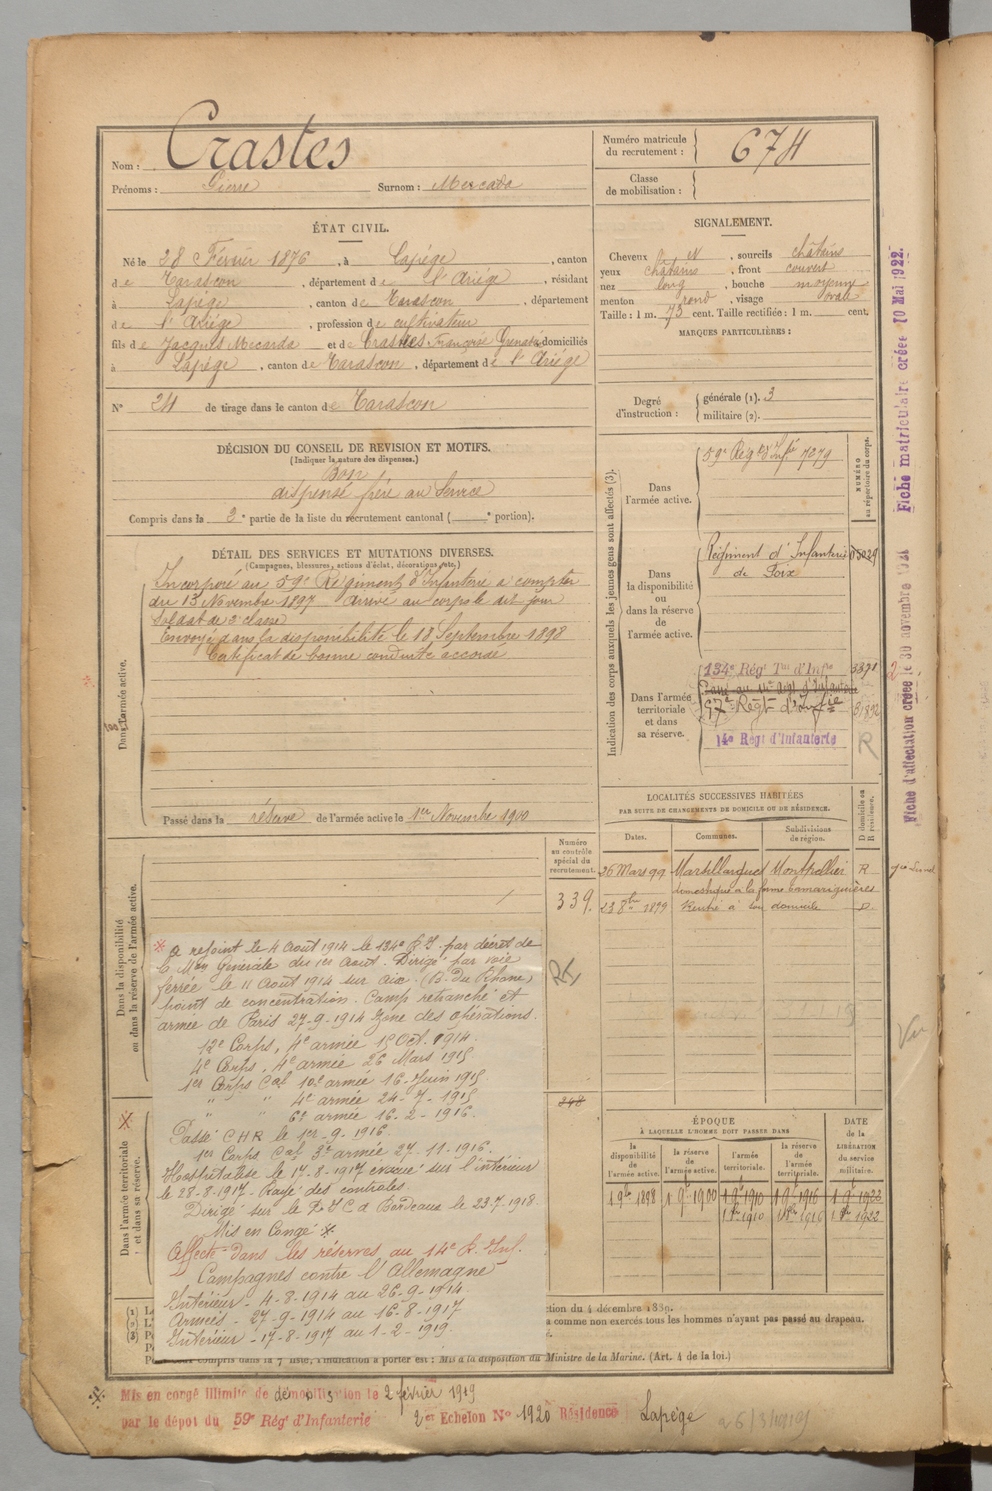 Nom : Crastes
Prénoms : Pierre Surnom : Mercada
Numéro matricule du recrutement : 674
Classe de mobilisation :
ÉTAT CIVIL.
Né le 28 Février 1876, à Lapège, canton
de Tarascon, département de l'Ariége, résidant
à Lapège, canton de Tarascon, département
de l'Ariége, profession de cultivateur
fils de Jacques Mecarda et de Crastes Françoise Grenada domiciliés
à Lapège, canton de Tarascon, département de l'Ariége
N° 24 de tirage dans le canton de Tarascon
SIGNALEMENT.
Cheveux N, sourcils châtains
yeux châtains, front couvert
nez long, bouche moyenne
menton rond, visage ovale
Taille : 1 m. 73 cent. Taille rectifiée : 1 m. cent.
MARQUES PARTICULIÈRES :
Degré d'instruction : générale (1). 3
militaire (2).
DÉCISION DU CONSEIL DE REVISION ET MOTIFS.
(Indiquer la nature des dispenses.)
Bon
dispensé frère au service
Compris dans la 2e partie de la liste du recrutement cantonal ( e portion).
DÉTAIL DES SERVICES ET MUTATIONS DIVERSES.
(Campagnes, blessures, actions d'éclat, décorations, etc.)
Dans l'armée active.
Incorporé au 59e Régiment d'Infanterie à compter
du 13 Novembre 1897 Arrivé au corps le dit jour
Soldat de 2e classe
Envoyé dans la disponibilité le 18 Septembre 1898
Certificat de bonne conduite accordé
Passé dans la réserve de l'armée active le 1er Novembre 1900
Indication des corps auxquels les jeunes gens sont affectés (3).
NUMÉRO au répertoire du corps.
Dans l'armée active.
59e Régt d'Infie 7079
Dans la disponibilité ou dans la réserve de l'armée active.
Régiment d'Infanterie 05029
de Foix
Dans l'armée territoriale et dans sa réserve.
134e Régt Tal d'Infie 3371
Passé au 14e Régt d'Infanterie
97e Régt d'Infie
14e Régt d'Infanterie R
LOCALITÉS SUCCESSIVES HABITÉES
PAR SUITE DE CHANGEMENTS DE DOMICILE OU DE RÉSIDENCE.
Dates. Communes. Subdivisions de région. D domicile ou R résidence.
26 Mars 99 Marsillargues Montpellier R
domestique à la ferme Tamariguières
23 8bre 1899 Rentré à son domicile D.
Dans la disponibilité ou dans la réserve de l'armée active.
Numéro au contrôle spécial du recrutement.
339.
248
A rejoint le 4 Août 1914 le 134e R.I. par décret de
Mon Générale du 1er Aout. Dirigé par voie
ferrée le 11 Aout 1914 sur Aix (B. du Rhône)
point de concentration. Camp retranché et
armée de Paris 27-9-1914 Zone des opérations.
12e Corps, 4e armée 15 Oct. 1914.
4e Corps, 4e armée 26 Mars 1915
1er Corps Cal 10e armée 16-Juin 1915.
" " 4e armée 24-7-1915
" " 6e armée 16-2-1916.
Passé CHR le 1er-9-1916.
1er Corps Cal 3e armée 27-11-1916.
Hospitalisé le 17-8-1917 évacué sur l'intérieur
le 28-8-1917. Rayé des contrôles.
Dirigé sur le D.I.C. à Bordeaux le 23.7.1918.
Mis en Congé
Affecté dans les réserves au 14e R. Inf.
Campagnes contre l'Allemagne
Intérieur - 4-8-1914 au 26-9-1914
Armées - 27-9-1914 au 16-8-1917
Intérieur - 17-8-1917 au 1-2-1919
Dans l'armée territoriale et dans sa réserve.
ÉPOQUE
À LAQUELLE L'HOMME DOIT PASSER DANS
la disponibilité de l'armée active. la réserve de l'armée active. l'armée territoriale. la réserve de l'armée territoriale. DATE de la LIBÉRATION du service militaire.
1 9bre 1898 1 9bre 1900 1 9bre 1910 1 9bre 1916 1 9bre 1922
ction du 4 décembre 1889.
a comme non exercés tous les hommes n'ayant pas passé au drapeau.
compris dans la 7e liste, l'indication à porter est : Mis à la disposition du Ministre de la Marine. (Art. 4 de la loi.)
Mis en congé illimité de démobilisation le 2 février 1919
par le dépôt du 59e Régt d'Infanterie 2e Echelon N° 1920 Résidence Lapège
Fiche d'affectation créée le 30 novembre 1921
Fiche matriculaire créée 10 Mai 1922.
Vu